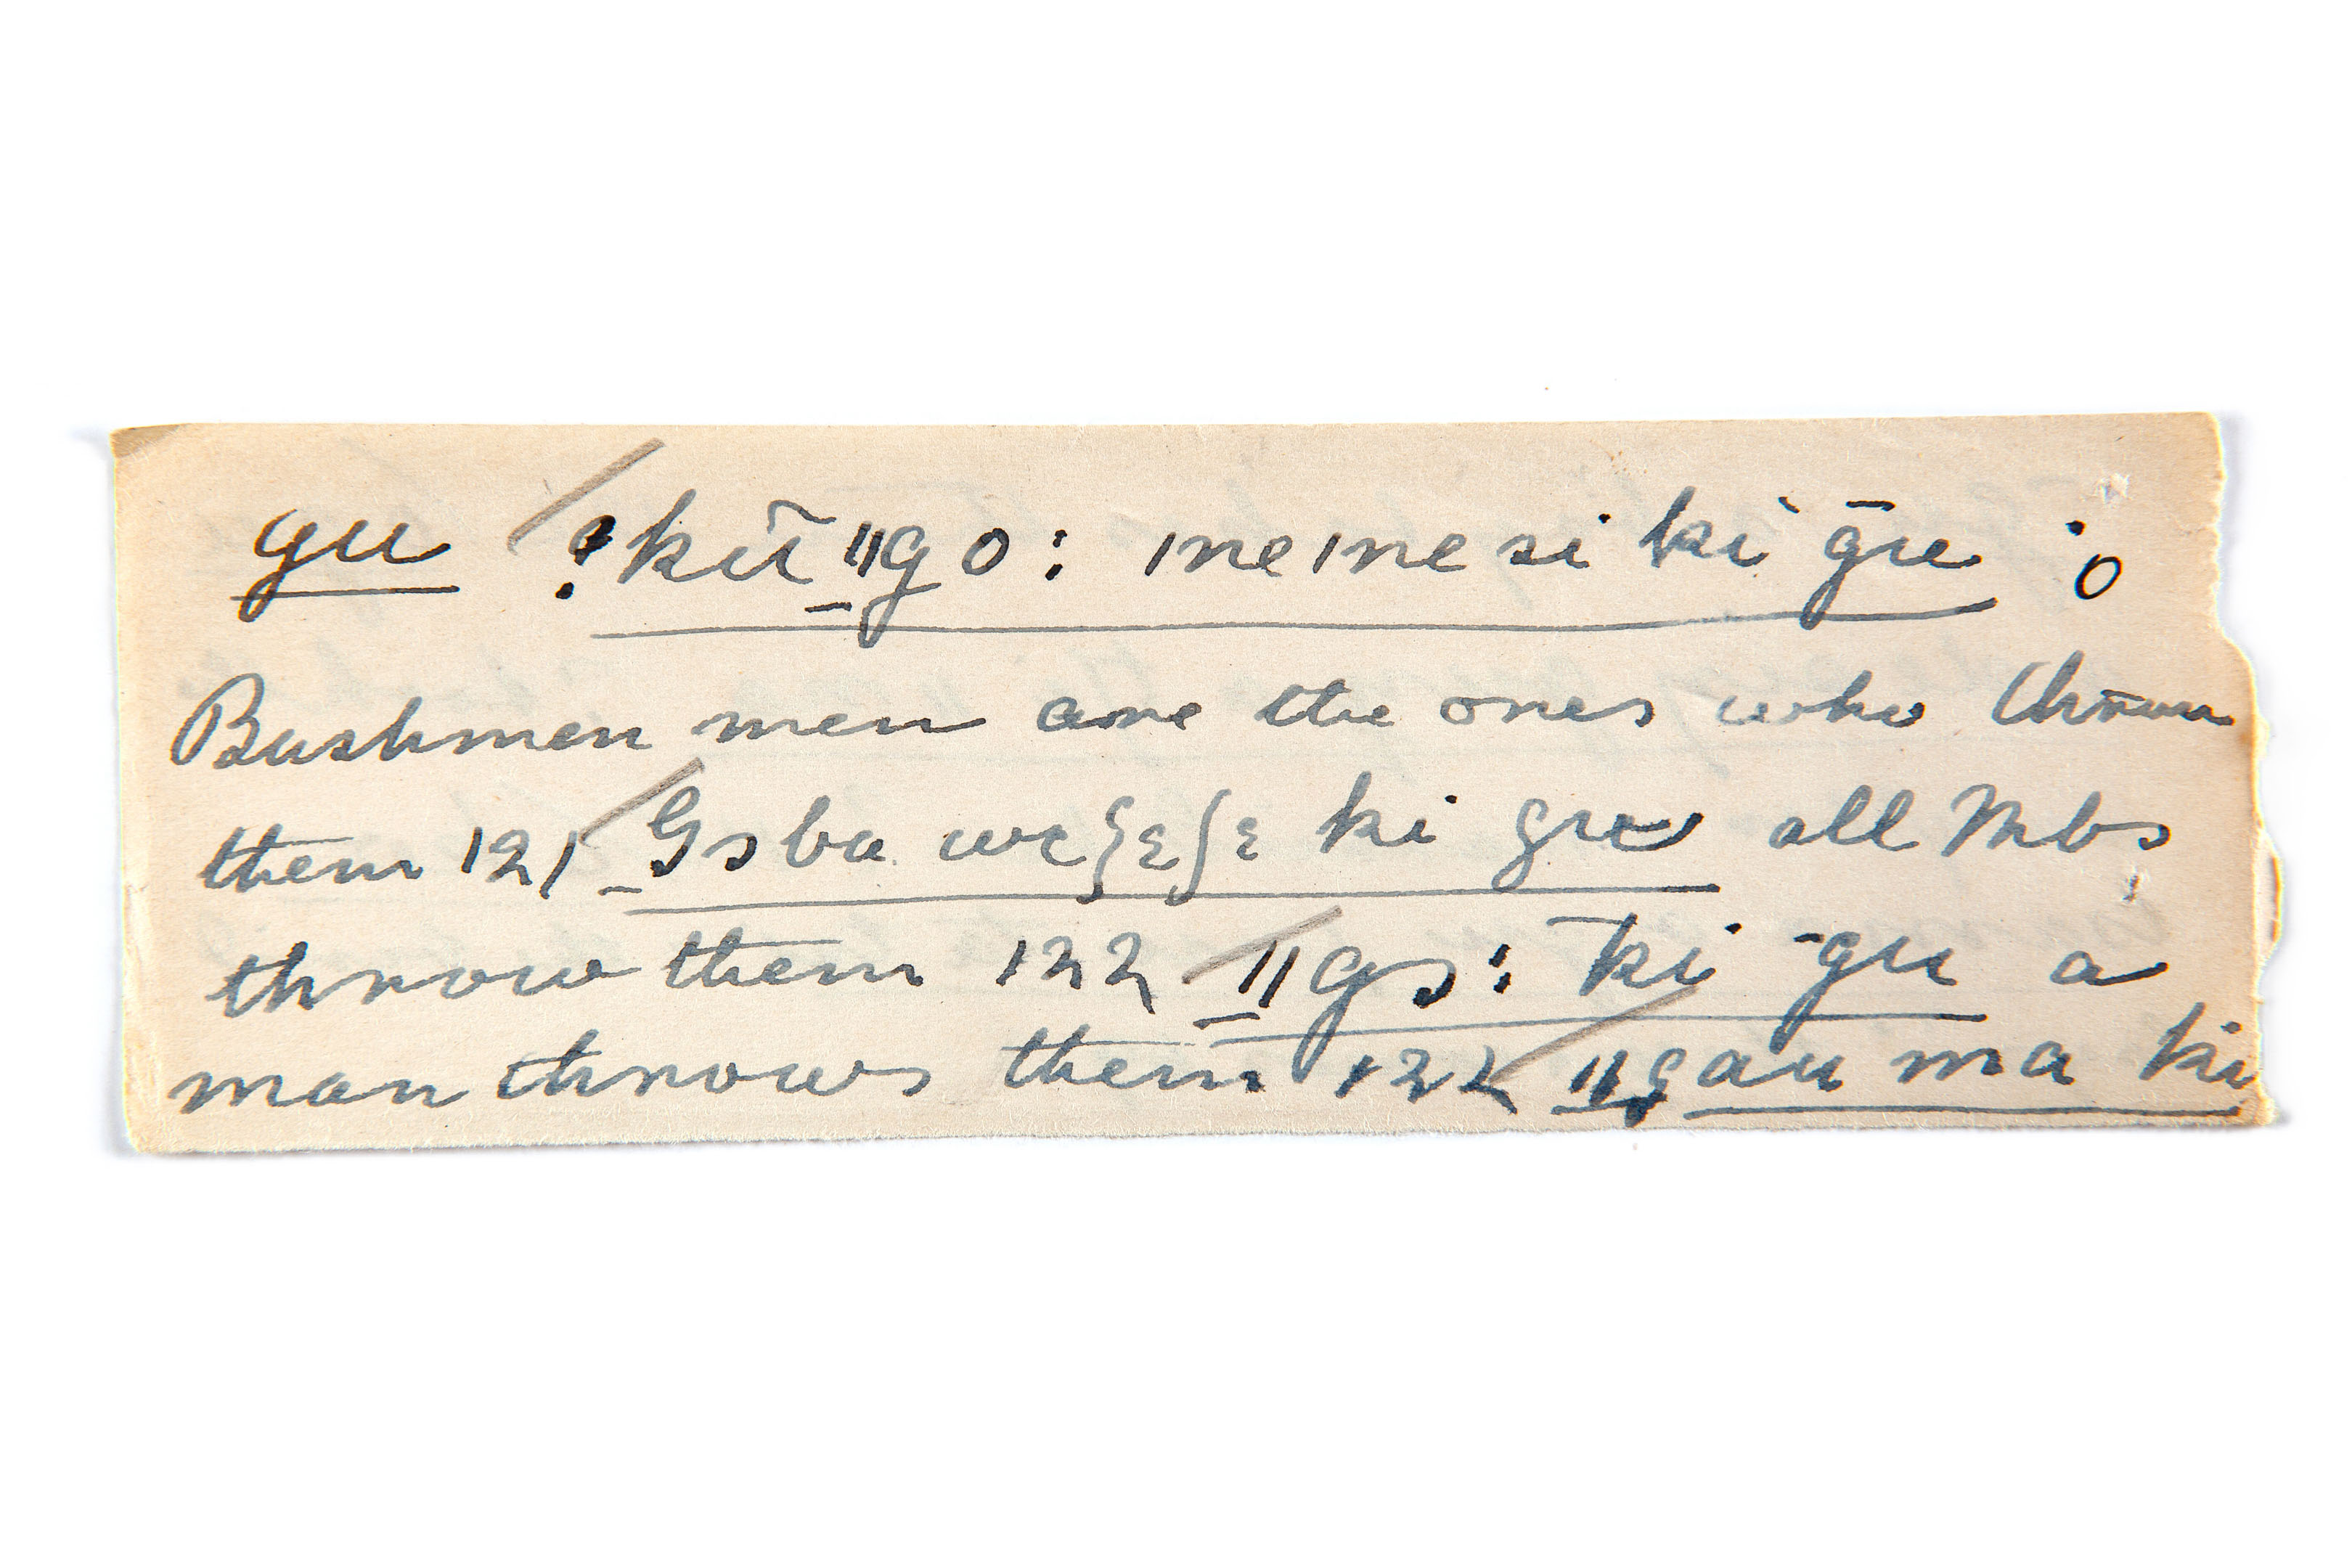 gu !kũ ǁgo: ıneınesi ki ḡu ;o
Bushmen men are the ones who throw
them 121 Gɔba wɛʒɛʃɛ ki gu all Mbs
throw them 122 ǁgɔ: ki gu a
man throws them 122 ǁgau ma ki